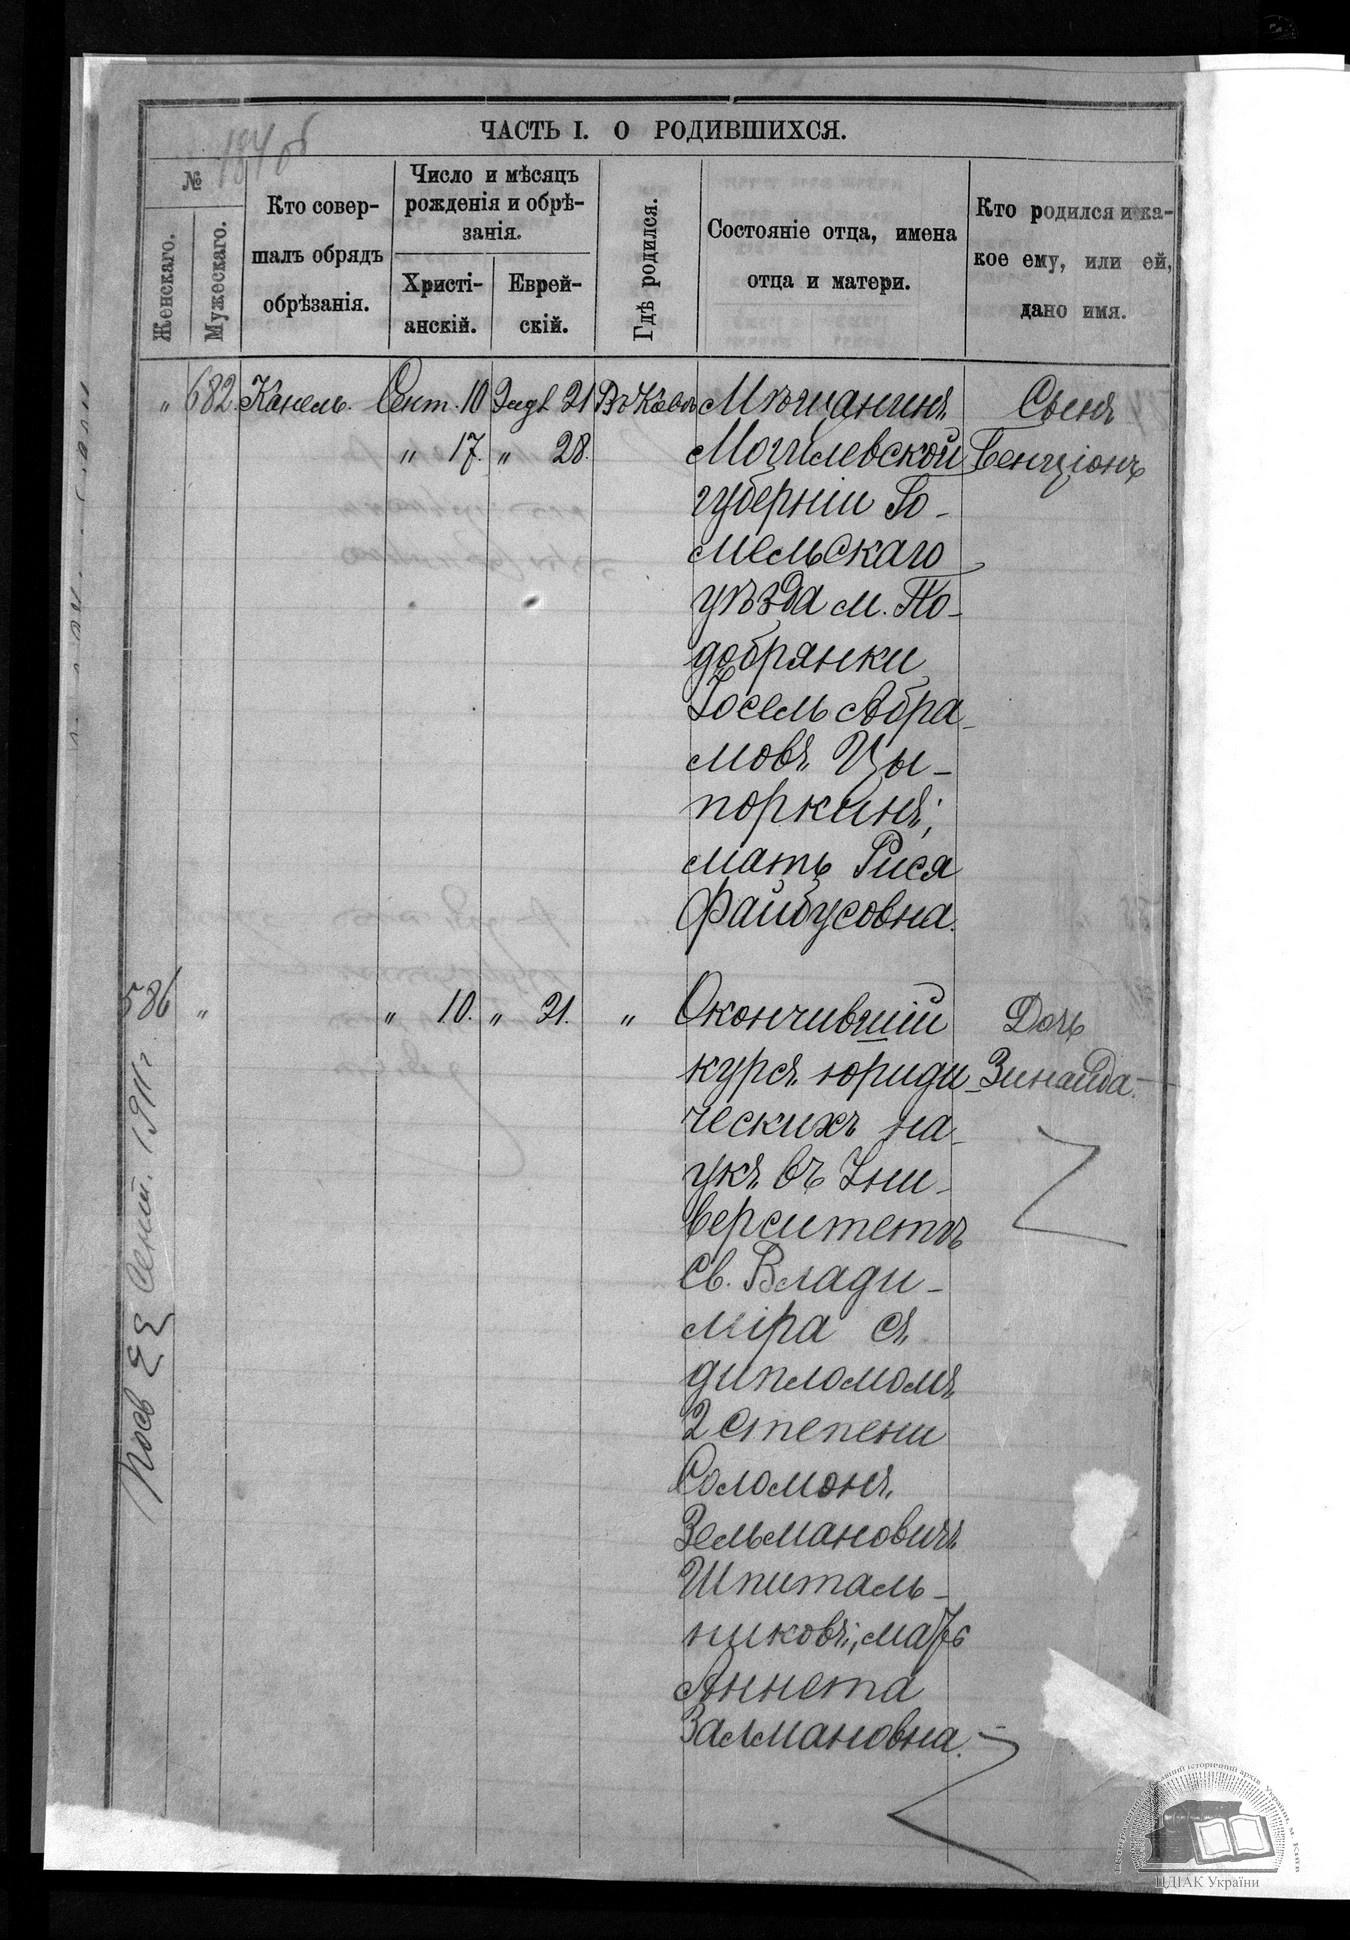 184 об
ЧАСТЬ I. О РОДИВШИХСЯ.
№
Женскаго.
Мужескаго.
Кто совер-
шалъ обрядъ
обрѣзанія.
Число и мѣсяцъ
рожденія и обрѣ-
занія.
Христі-
анскій.
Еврей-
скій.
Гдѣ родился.
Состояніе отца, имена
отца и матери.
Кто родился и ка-
кое ему, или ей,
дано имя.
" 682. Канель. Сент. 10 21 Въ Кіевѣ Мѣщанинъ Сынъ
" 17. " 28. Могилевской Бенціонъ
губерніи Го-
мельскаго
уѣзда м. По-
добрянки
Іосель Абра-
мовъ Цы-
поркинъ;
мать Рися
Файбусовна.
586 " " 10. " 21. " Окончившій Дочь
курсъ юриди- Зинаида.
ческихъ на-
укъ въ Уни-
верситетѣ
Св. Влади-
міра съ
дипломомъ
2 степени
Соломонъ
Зельмановичъ
Шпиталь-
никовъ; мать
Аннета
Залмановна.
Сент. 1911 г.
ЦДІАК України